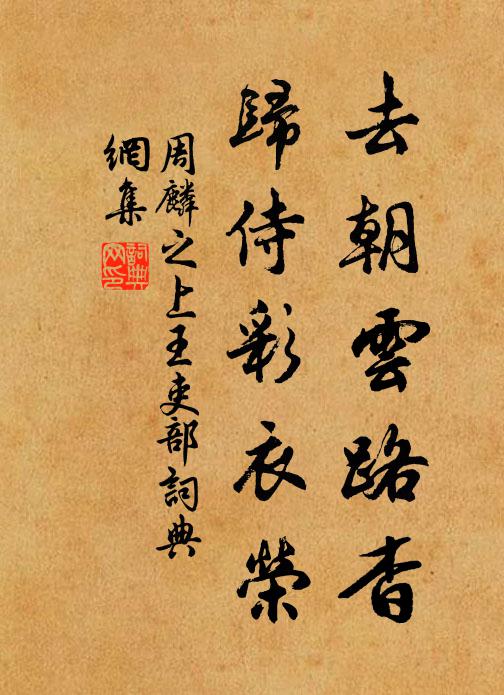 去朝雲路杳
歸侍彩衣榮
周麟之上王吏部詞典
網集
詞典
网印